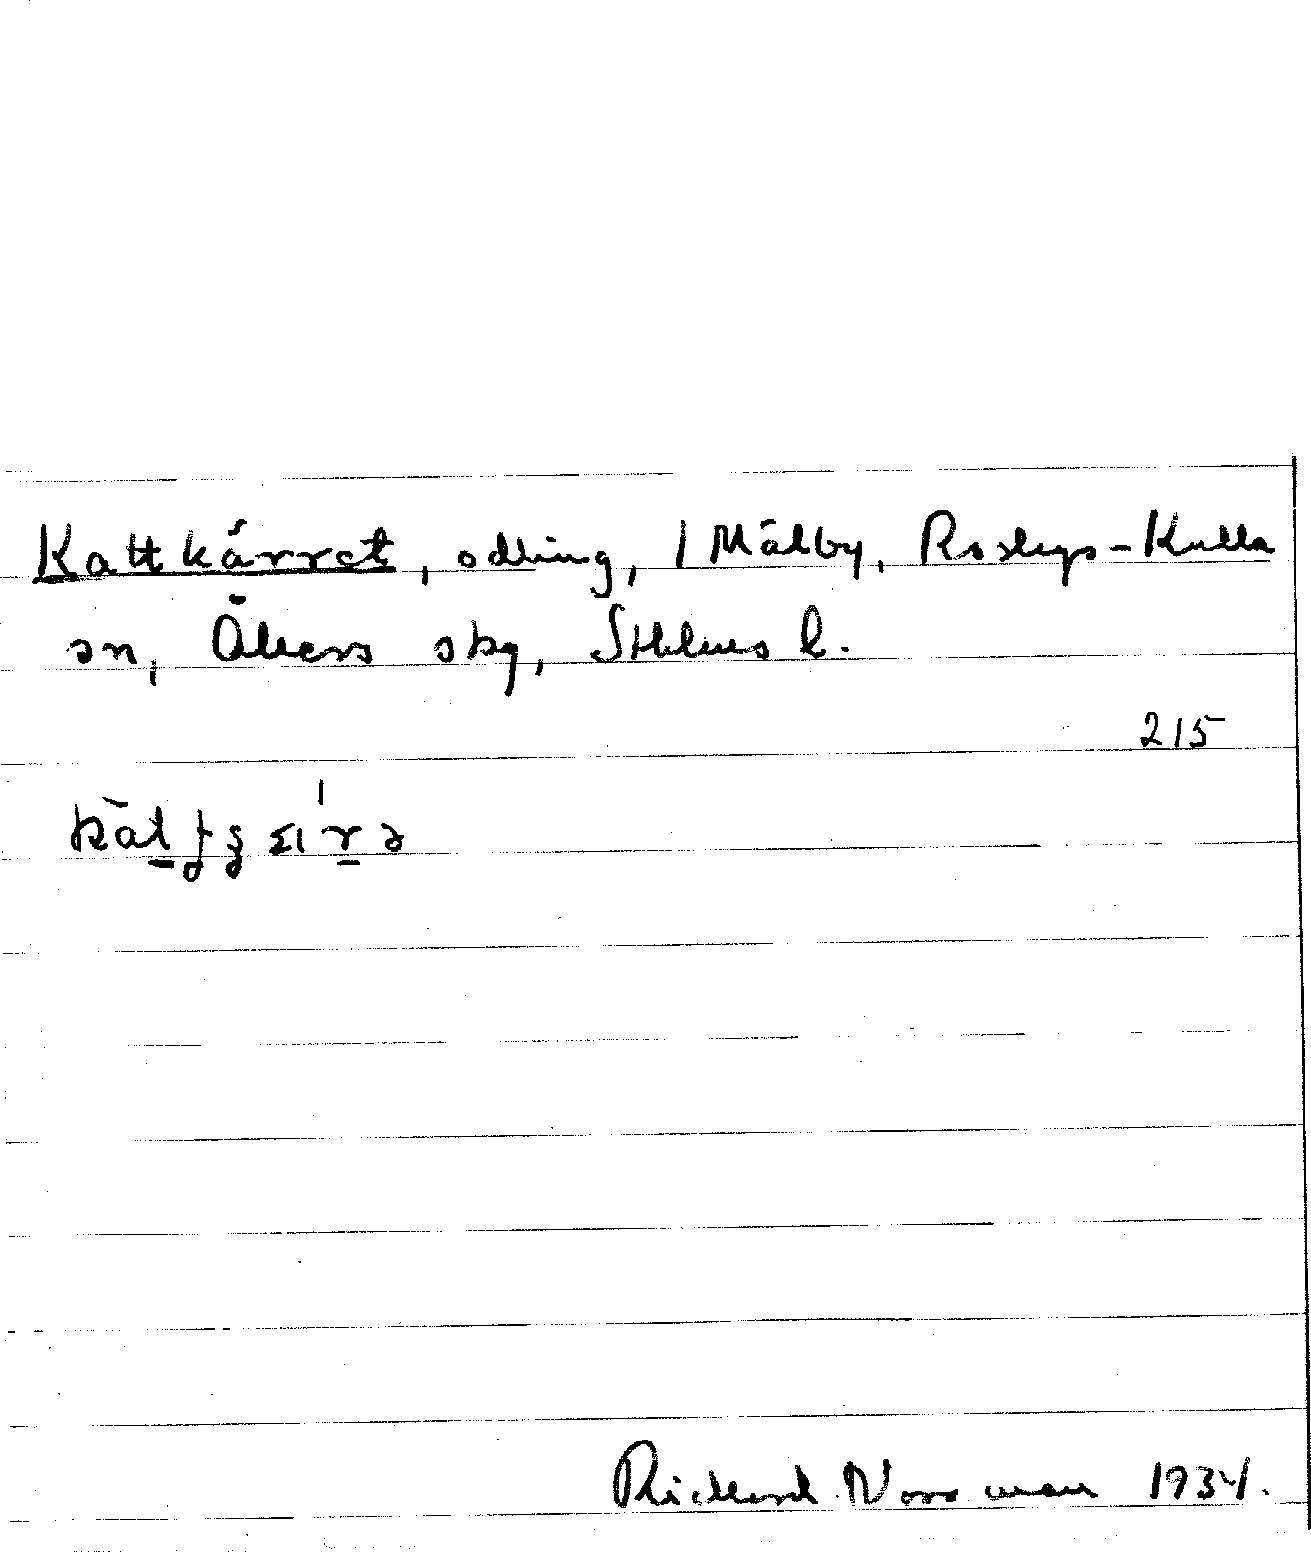 Kattkärret, odling, / Målby, Roslags-Kulla
sn, Åkers skg, Sthlms l.
215
Richard Norrman 1934.